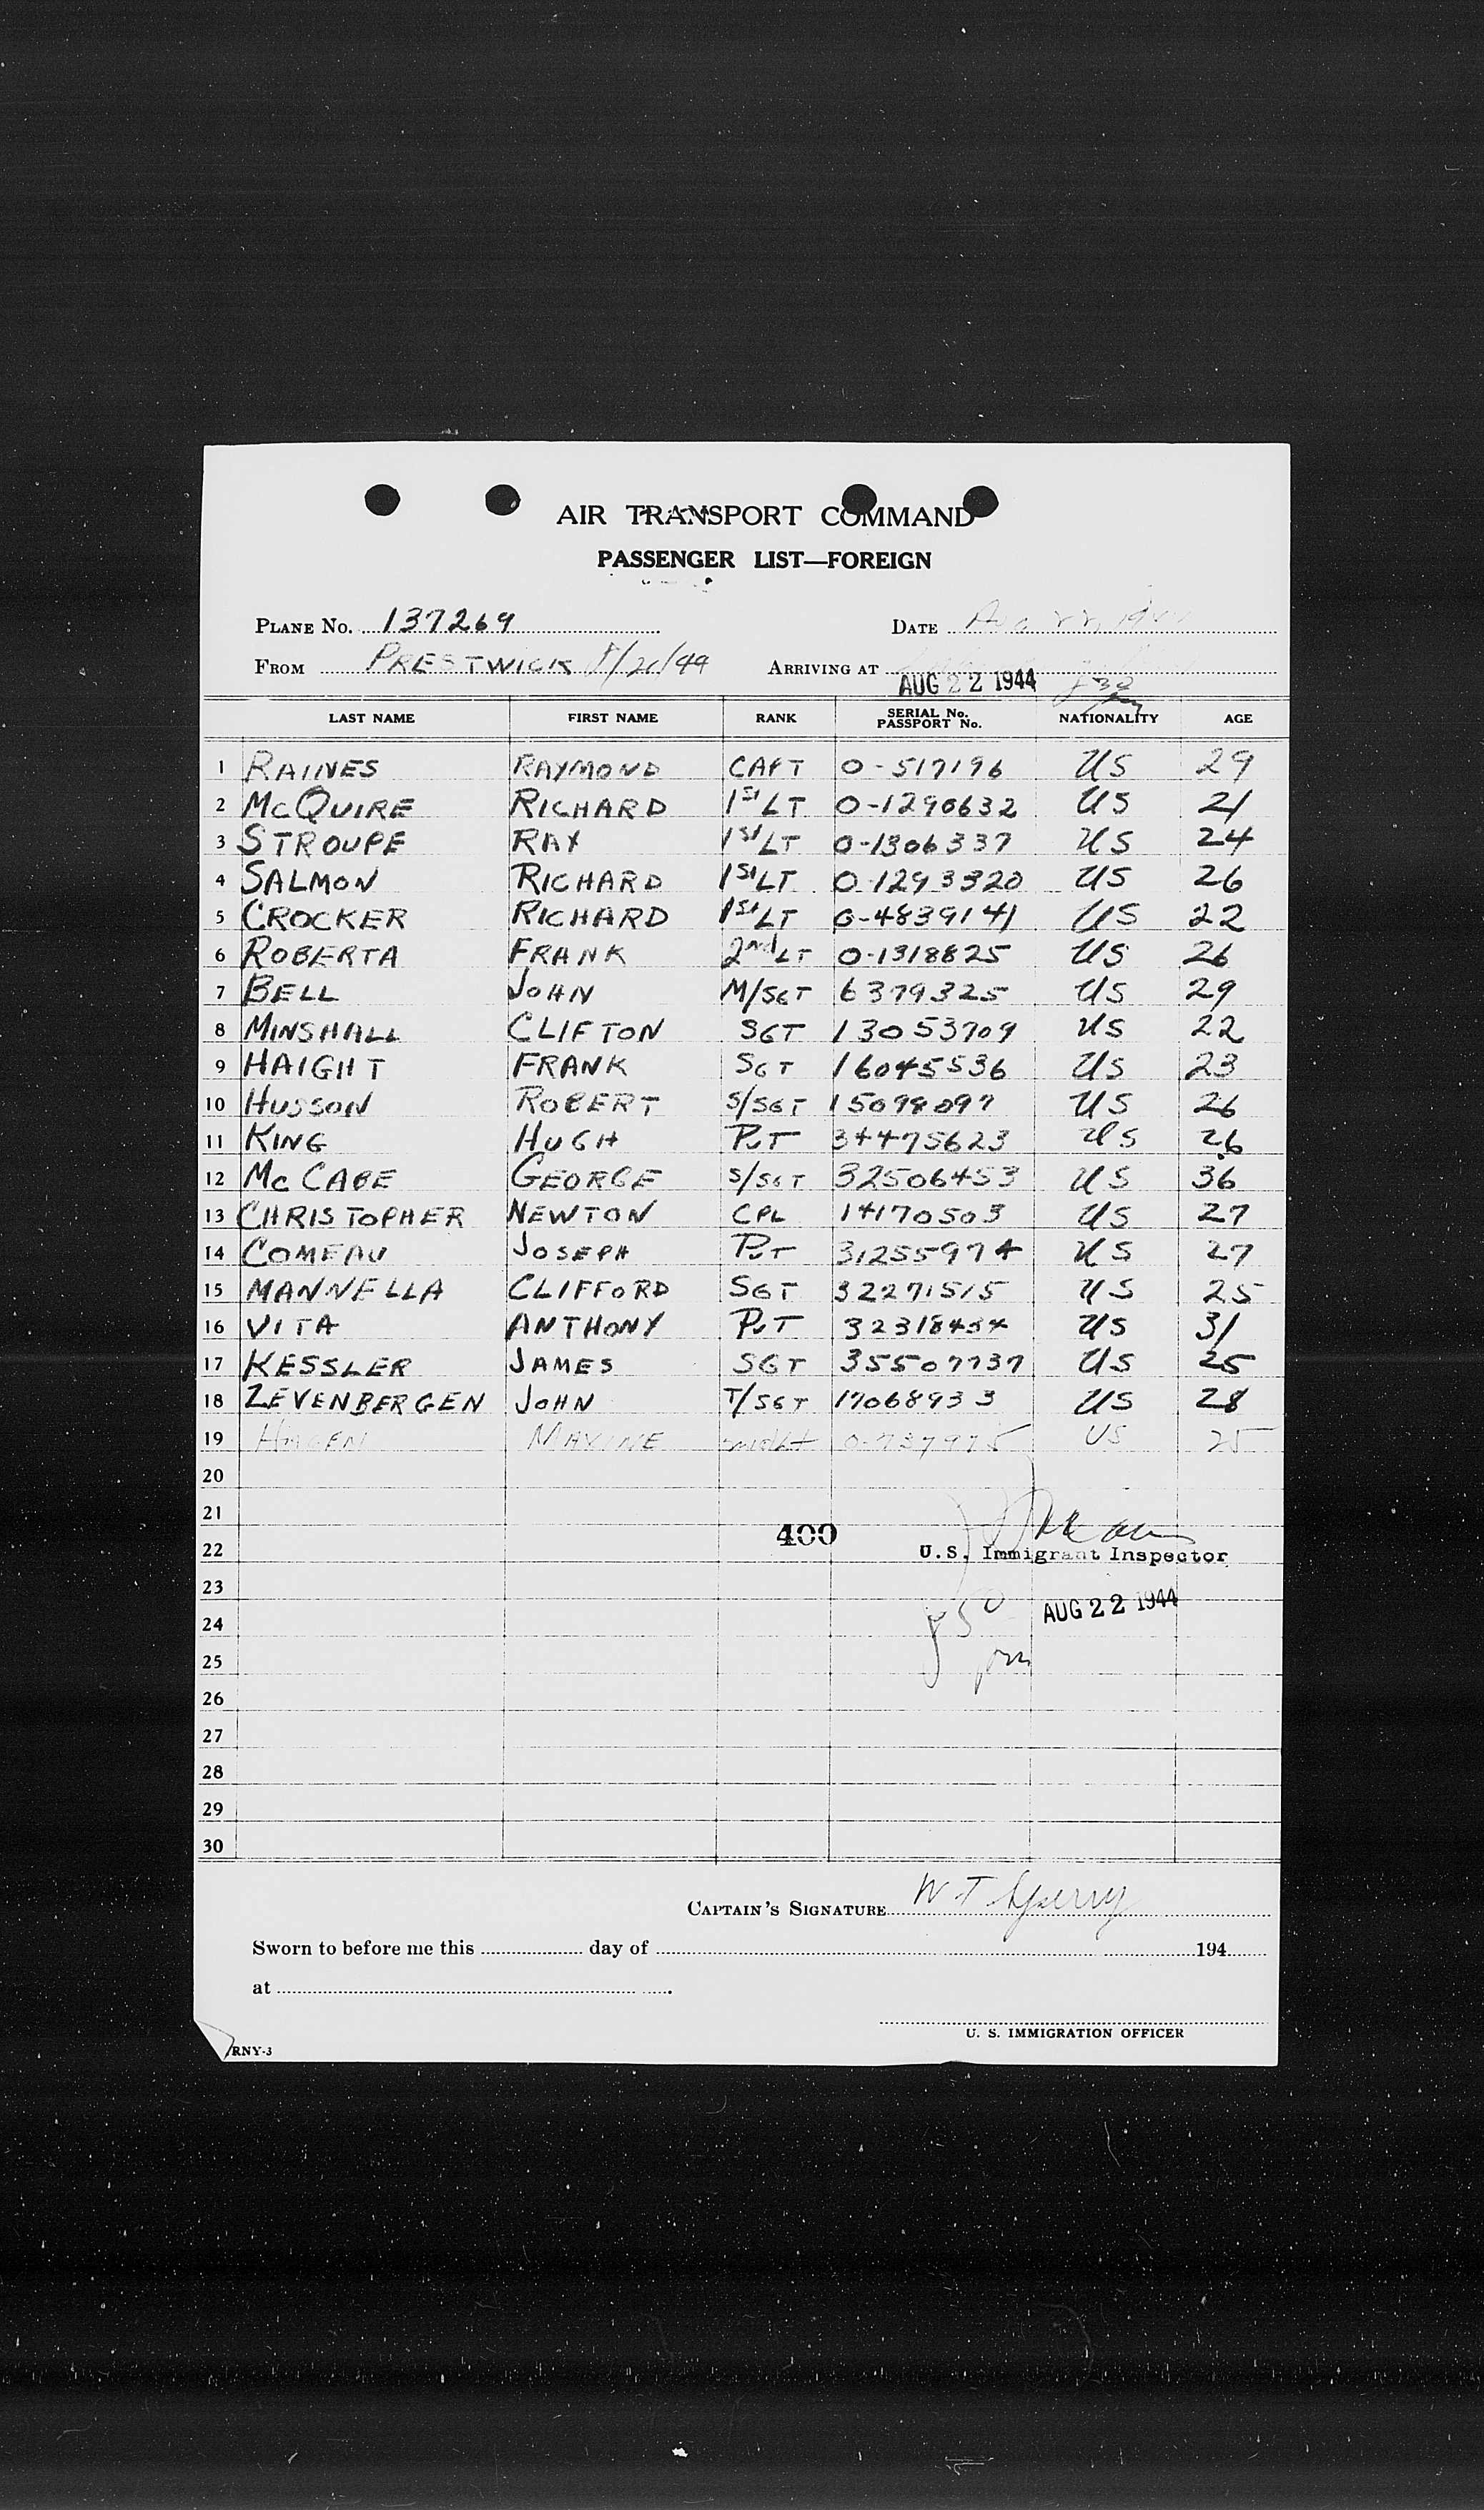 AIR TRANSPORT COMMAND
PASSENGER LIST—FOREIGN
PLANE No. 137269 DATE Aug 22, 1944
FROM PRESTWICK 8/21/44 ARRIVING AT
AUG 22 1944 830 pm
LAST NAME FIRST NAME RANK SERIAL No. PASSPORT No. NATIONALITY AGE
1 RAINES RAYMOND CAPT O-517196 US 29
2 McQUIRE RICHARD 1ST LT O-1290632 US 21
3 STROUPE RAY 1ST LT O-1306337 US 24
4 SALMON RICHARD 1ST LT O-1293320 US 26
5 CROCKER RICHARD 1ST LT O-4839141 US 22
6 ROBERTA FRANK 2nd LT O-1318825 US 26
7 BELL JOHN M/SGT 6379325 US 29
8 MINSHALL CLIFTON SGT 13053709 US 22
9 HAIGHT FRANK SGT 16045536 US 23
10 HUSSON ROBERT S/SGT 15098097 US 26
11 KING HUGH PVT 34475623 US 26
12 McCABE GEORGE S/SGT 32506453 US 36
13 CHRISTOPHER NEWTON CPL 14170503 US 27
14 COMEAU JOSEPH PVT 31255974 US 27
15 MANNELLA CLIFFORD SGT 32271515 US 25
16 VITA ANTHONY PVT 32318434 US 31
17 KESSLER JAMES SGT 35507737 US 25
18 ZEVENBERGEN JOHN T/SGT 17068933 US 28
19 HAGEN MAXINE 2nd Lt O-737975 US 25
20
21
400
22 U.S. Immigrant Inspector
23
AUG 22 1944
24 850
25 pm
26
27
28
29
30
CAPTAIN'S SIGNATURE W T Sperry
Sworn to before me this day of 194
at
U. S. IMMIGRATION OFFICER
RNY-3